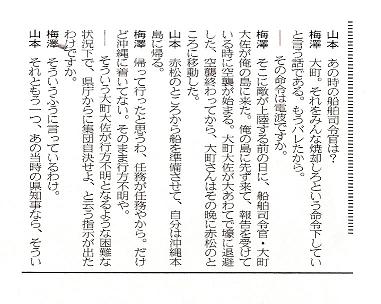 山本　あの時の船舶司令官は？
梅澤　大町。それをみんな焼却しろという命令下してい
と言う話である。もうバレたから。
――その命令は電波ですか。
梅澤　そこに敵が上陸する前の日に、船舶司令官・大町
大佐が俺の島に来た。俺の島に先ず来て、報告を受けて
いる時に空襲が始まる。大町大佐が大あわてで壕に退避
した、空襲終わってから、大町さんはその晩に赤松のと
ころに移動した。
山本　赤松のところから船を準備させて、自分は沖縄本
島に帰る。
梅澤　帰って行ったと思うわ、任務が任務やから。だけ
ど沖縄に着いてない。そのまま行方不明や。
――そういう大町大佐が行方不明となるような困難な
状況下で、県庁からに集団自決せよ、と言う指示が出た
わけですか。
梅澤　そういうふうに言っているわけ。
山本　それともう一つ、あの当時の県知事なら、そうい